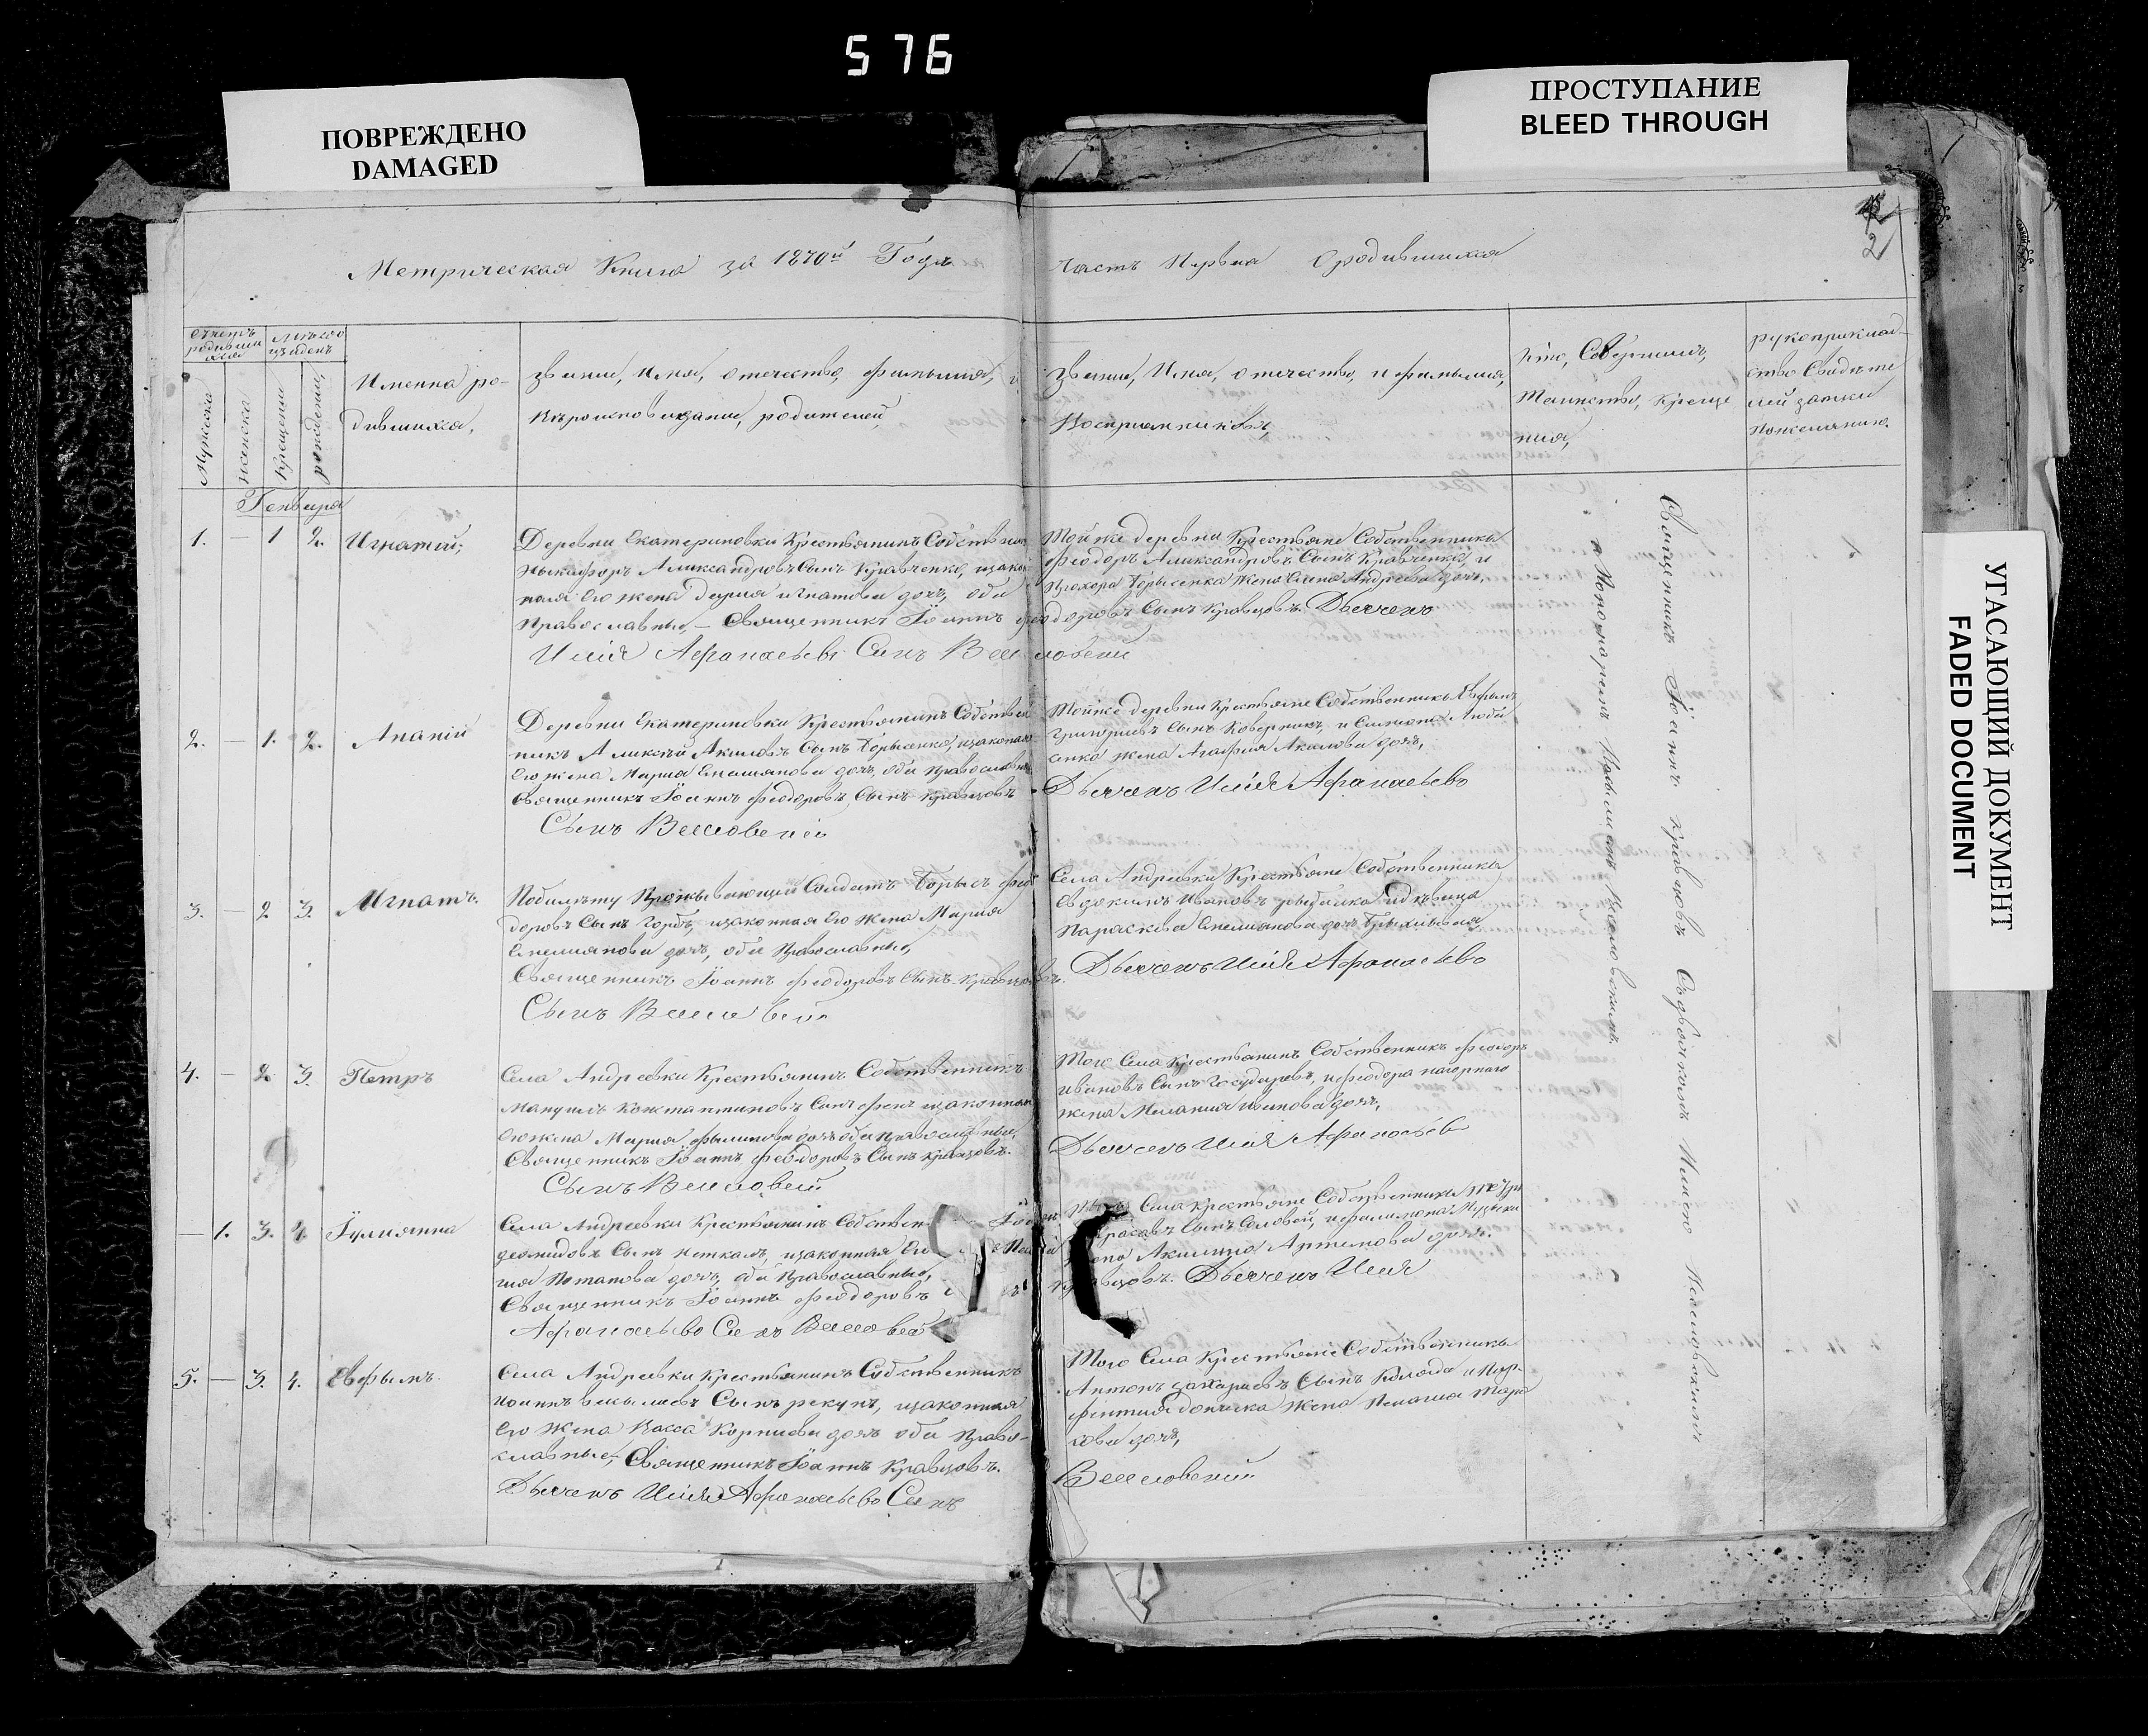 576
ПОВРЕЖДЕНО
DAMAGED
ПРОСТУПАНИЕ
BLEED THROUGH
УГАСАЮЩИЙ ДОКУМЕНТ
FADED DOCUMENT
2
Метрическая Книга за 1870й Годъ
Часть Перьва О родившихся
Мужеска
женска
Крещения
рождения,
Именна ро-
дившихся,
Звание, Имя, отечество, фамилия, и
Какого вероисповедания, родителей,
Звание, Имя, отечество, и фамилия,
Восприемниковъ,
Кто, Совершилъ,
Таинство, Креще
ния,
рукоприклад-
ство Свидѣте
лей записи
Пожеланию.
Генваря
1. — 1 2. Игнатій;
Деревни Екатериновки Крестьянинъ Собствен
Никифоръ Александровъ Сынъ Кравченко, изакон
ная Его жена Дарія Игнатова дочь, оба
Православные, — Священникъ Іоаннъ Феодоровъ Сынъ Кравцовъ. Дьячекъ
Илія Афанасьевъ Сынъ Веселовскій
Тойже деревни Крестьяне Собственники
Феодоръ Александровъ Сынъ Кравченко, и
Прохора Борысенка жена Елена Андреева дочь,
2. — 1. 2. Ананій
Деревни Екатериновки Крестьянинъ Собствен
никъ Аликсѣй Акиловъ Сынъ Борысенко, изаконая
Его жена Марія Емелиянова дочь, оба Православные
Священникъ Іоаннъ Феодоровъ Сынъ Кравцовъ
Сынъ Веселовскій
Тойже деревни Крестьяне Собственникъ Евфимъ
Григориевъ Сынъ Коверникъ, и Симиона Люби
енко жена Агафия Акилова дочь,
Дьячекъ Илія Афанасьево
3. — 2 3. Игнатъ.
Побилѣту Проживающий Солдатъ Борысъ Фео
доровъ Сынъ Горбъ, изаконная Его жена Мария
Емелиянова дочь, оба Православные,
Священникъ Іоаннъ Феодоровъ Сынъ Кравцовъ.
Сынъ Веселовскій
Села Андреевки Крестьяне Собственники
Евдокимъ Ивановъ рыбалка и дѣвица
Параскева Емелиянова дочь
Дьячекъ Илія Афанасьево
4. — 2 3. Петръ
Села Андреевки Крестьянинъ Собственникъ
Мануилъ Константиновъ Сынъ Фенъ изаконная
Его жена Мария Филипова дочь оба Православные,
Священникъ Іоаннъ Феодоровъ Сынъ Кравцовъ.
Сынъ Веселовскій
Того Села Крестьянинъ Собственникъ Феодоръ
Ивановъ Сынъ Государевъ, и Феодора нагорнаго
жена Мелания Иванова дочь,
Дьячекъ Илія Афанасьевъ
— 1. 3. 4. Іулиянна
Села Андреевки Крестьянинъ Собствен
Демидовъ Сынъ Неткалъ, изаконная Его
гия Потапова дочь, оба Православные,
Священникъ Іоаннъ Феодоровъ
Афанасьево Сынъ Веселовскій
Села Крестьяне Собственники Петръ
Сынъ Соловей, и Филимона Музыки
жена Акилина Артемова дочь.
Кравцовъ. Дьячекъ Илія
5. — 3. 4. Евфимъ.
Села Андреевки Крестьянинъ Собственникъ
Иоаннъ Сынъ рекунъ, изаконная
Его жена Васса Корниева дочь оба Право-
славные, Священникъ Іоаннъ Кравцовъ.
Дьячекъ Илія Афанасьево Сынъ
Того Села Крестьяне Собственники
Антонъ Захариевъ Сынъ Коляда и Пар-
фентия Жена Пелагия Мар
кова дочь,
Веселовский
Священникъ Іоаннъ Кравцовъ Съ дьячкомъ Илиею Веселовскимъ
и Пономаремъ Веселовскимъ.